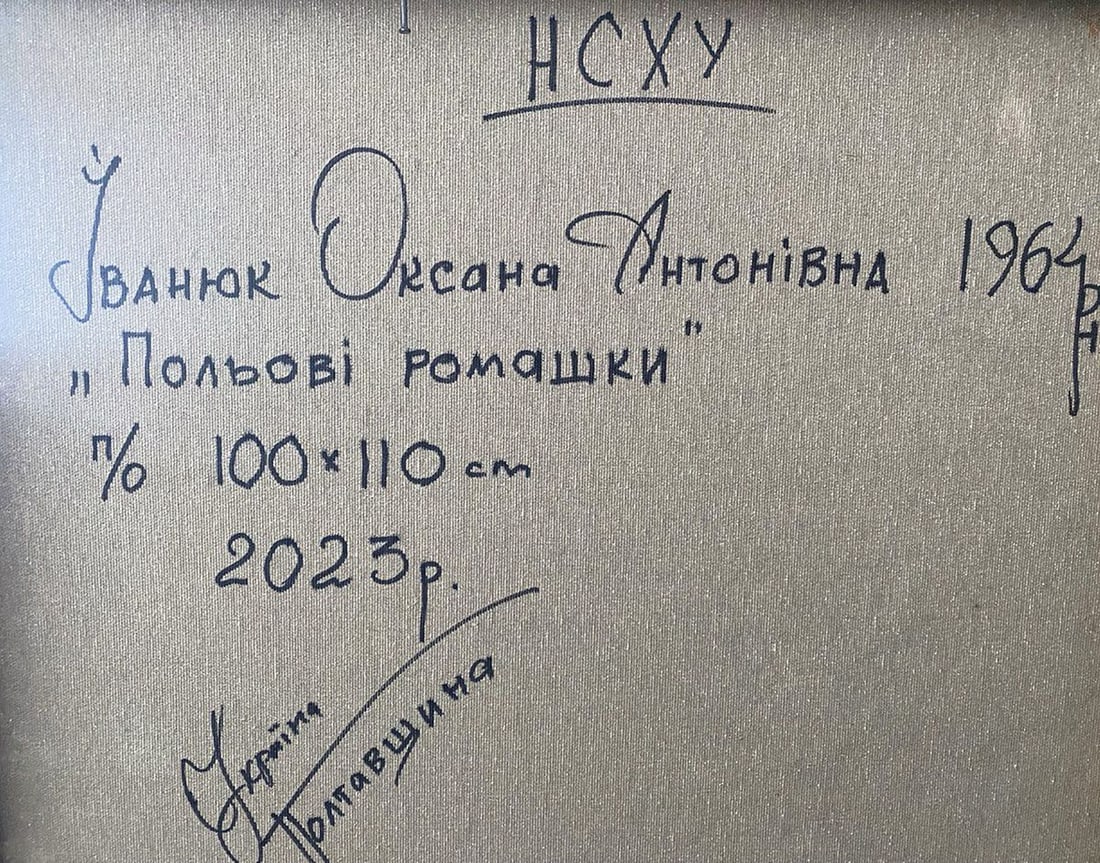 НСХУ
Іванюк Оксана Антонівна 1964 рн
„Польові ромашки"
п/о 100×110 см
2023р.
Україна
Полтавщина